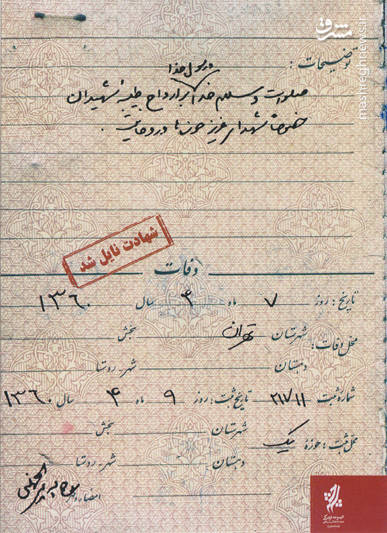 مشرق
mashreghnews.ir
توضیحات :
و رسول خدا
صلوات و سلام خدا بر ارواح طیبه شهیدان
خصوصاً شهدای عزیز
شهادت نایل شد
وفات
تاریخ : روز ۷ ماه ۴ سال ۱۳۶۰
محل وفات : شهرستان تهران بخش
دهستان شهر - روستا
شماره ثبت ۲۱۷۱۱ تاریخ ثبت : روز ۹ ماه ۴ سال ۱۳۶۰
محل ثبت : حوزه یک شهرستان بخش
دهستان شهر - روستا
امضاء